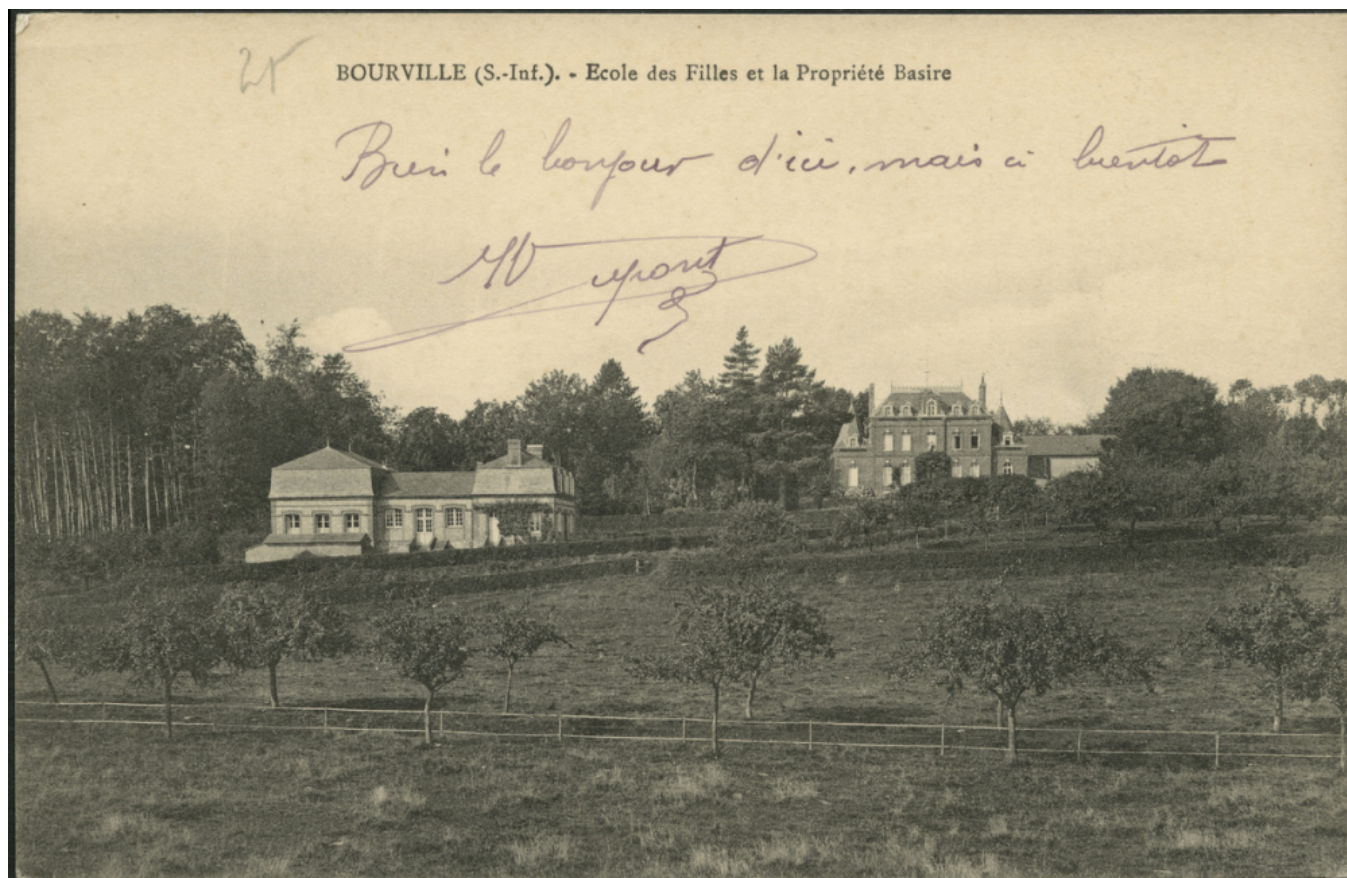 BOURVILLE (S.-Inf.). - Ecole des Filles et la Propriété Basire
Bien le bonjour d'ici, mais à bientôt